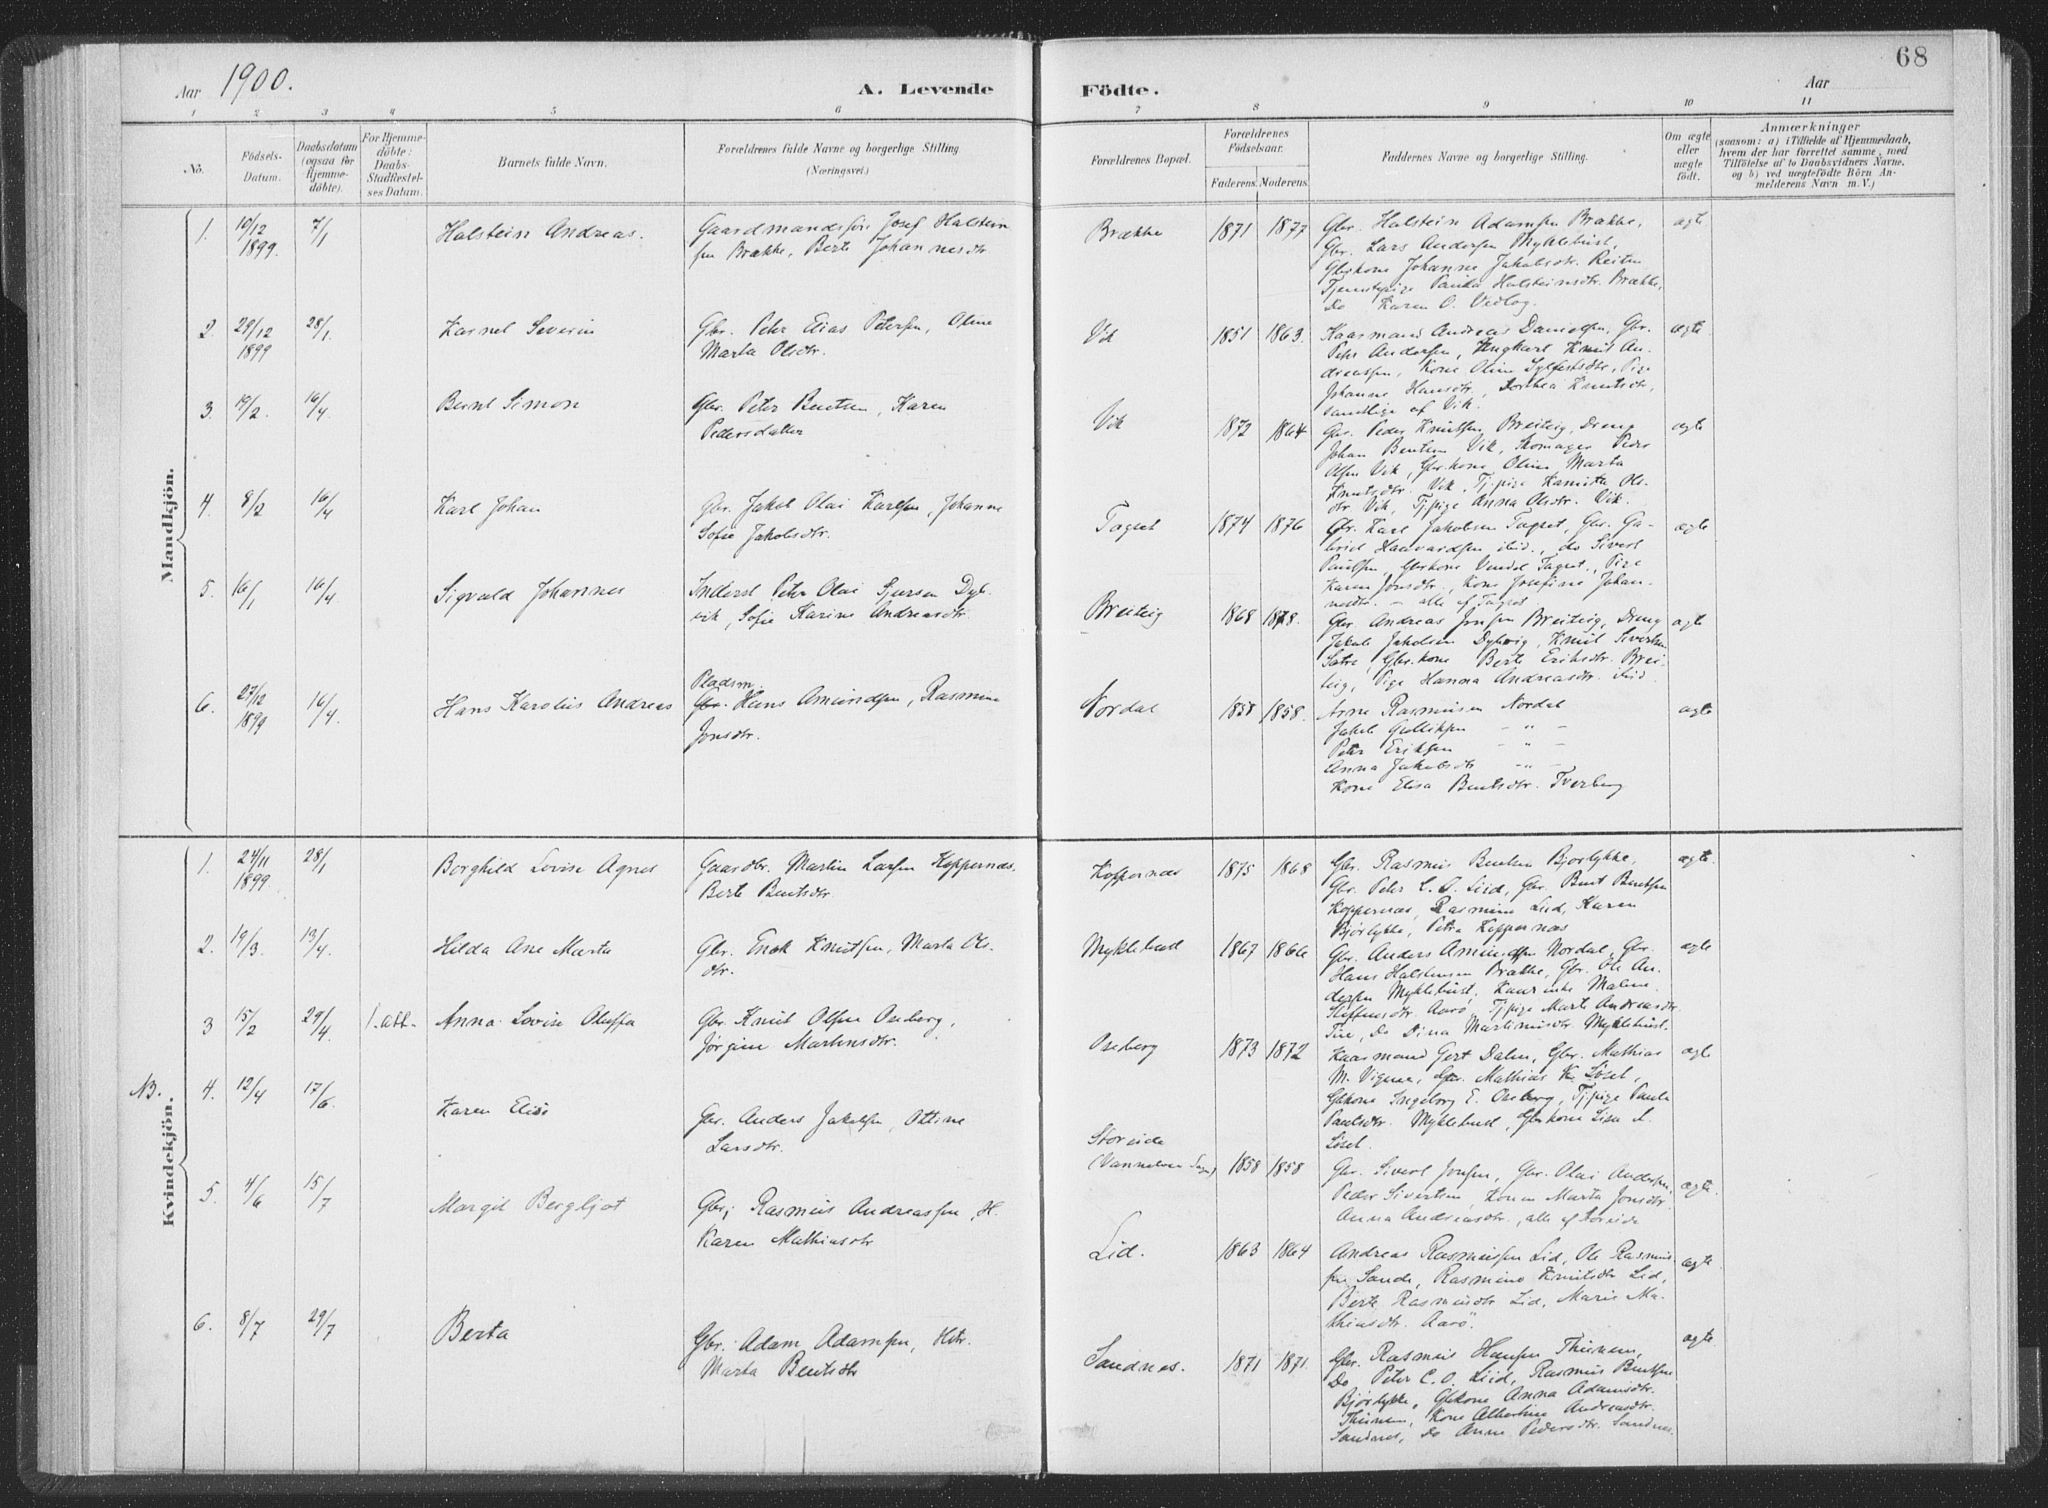 68
Aar 1900.
A. Levende Födte.
Aar
1 2 3 4 5 6 7 8 9 10 11
No.
Födsels-
Datum.
Daabsdatum
(ogsaa for
Hjemme-
döbte).
For Hjemme-
döbte:
Daabs-
Stadfæstel-
ses Datum.
Barnets fulde Navn.
Forældrenes fulde Navne og borgerlige Stilling.
(Næringsvei.)
Forældrenes Bopæl.
Forældrenes
Födselsaar.
Faderens. Moderens.
Faddernes Navne og borgerlige Stilling.
Om ægte
eller
uægte
födt.
Anmærkninger
(saasom: a) i Tilfælde af Hjemmedaab,
hvem der har forrettet samme, med
Tilföielse af to Daabsvidners Navne,
og b) ved uægtefödte Börn An-
melderens Navn m. V.)
Mandkjön.
1. 10/12 1899. 7/1 Halstein Andreas.
Gaardmandsfor. Josef Halstein
sen Brække, Berte Johannesdtr
Brække 1871 1877
Gbr. Halstein Adamsen Brække,
Gbr. Lars Andersen Myklebust,
Gbrkone Johanne Jakobsdtr. Reiten
Tjenestepige Paula Halsteinsdtr. Brække,
Do Karen O. Vedlog.
ægte
2. 29/12 1899 28/1 Karnel Severin
Gbr. Petr Elias Petersen, Oline
Marta Olsdtr.
Vik 1851 1863.
Kaarmand Andreas Danielsen, Gbr.
Petr Andersen, Ungkarl Knut An-
dreassen, Kone Olina Sylfestsdtr, Pige
Johanne Hansdtr, Dorthea Knutsdtr,
samtlige af Vik.
ægte
3. 19/2. 16/4 Bernt Simon
Gbr. Peter Bentsen, Karen
Pedersdatter
Vik 1872 1864
Gbr. Peder Knutsen Breiteig, Dreng
Johan Bentsen Vik, Skomager Peder
Olsen Vik, Gbrkone Oline Marta
Knutsdtr. Vik, Tj.pige Hansitta Ols-
dtr Vik, Tj.pige Anna Olsdtr. Vik.
ægte
4. 8/2 16/4 Karl Johan
Gbr. Jakob Olai Karlsen, Johanne
Sofie Jakobsdtr.
Tagset 1874 1876
Gbr. Karl Jakobsen Tagset, Gbr. Ga-
briel Haavardsen ibid., do Sivert
Paulsen, Gbrkone Vendel Tagset, Pige
Karen Jonsdtr., Kone Josefine Johan-
nesdtr. – alle af Tagset
ægte
5. 16/1 16/4 Sigvald Johannes
Inderst Petr Olai Sjursen Dyb-
vik, Sofie Karine Andreasdtr.
Breiteig 1868 1878.
Gbr. Andreas Jonsen Breiteig, Dreng
Jakob Jakobsen Dybvig, Knut Sivertsen
Sætre, Gbr.kone Berte Eriksdtr. Brei-
teig, Pige Hanna Andreasdtr. ibid.
ægte
6. 27/12 1899 16/4. Hans Karolus Andreas
Pladsm.
Gbr. Hans Amundsen, Rasmine
Jonsdtr.
Nordal 1858.
Arne Rasmusen Nordal
Jakob Gulliksen – " –
Petr Eriksen – " –
Anna Jakobsdtr – " –
Kone Elisa Bentsdtr. Tverberg
ægte
Kvindekjön.
1. 24/11 1899 28/1 Borghild Lovise Agnes
Gaardbr. Martin Larsen Koppernæs.
Berte Bentsdtr.
Koppernæs 1875 1868
Gbr. Rasmus Bentsen Bjorlykke,
Gbr. Petr C. O. Liid, Gbr. Bent Bentsen
Koppernæs, Rasmine Liid, Karen
Bjørlykke, Petra Koppernæs
ægte
2. 19/3. 13/4. Hilda Ane Marta
Gbr. Enok Knutsen, Marta Ols-
dtr.
Myklebust 1867 1866
Gbr. Anders Amundsen Nordal, Gbr.
Hans Halstensen Brække, Gbr. Ole An-
dersen Myklebust, Malene
Steffensdtr. Aarø, Tj.pige Marte Andreasdtr
Do Dina Martinusdtr. Myklebust.
ægte
3 15/2 29/4 Anna Lovise Oluffa
Gbr. Knut Olsen Oseberg,
Jørgine Martinsdtr.
Oseberg 1873 1872
Kaarmand Gert Dalen, Gbr. Mathias
M. Vignes, Gbr. Mathias K. Løset,
Gbkone Ingeborg E. Oseberg, Tj.pige Paula
Paulsdtr. Myklebust, Gbrkone Lisa
Løset
ægte
NB. 4. 12/4 17/6. Karen Elise
Gbr. Anders Jakobsen, Ottine
Larsdtr.
Storeide
(Vannelven Sogn) 1858 1858
Gbr. Sivert Jonsen, Gbr. Olai Andersen,
Peder Sivertsen Konen Marta Jonsdtr.
Anna Andreasdtr., alle af Storeide
ægte.
5. 4/6 15/7 Margit Bergljot
Gbr; Rasmus Andreassen, H.
Karen Mathiasdtr
Lid. 1863 1864
Andreas Rasmussen Lid, Ole Rasmus-
sen Sande, Rasmine Knutsdtr Lid,
Berte Rasmusdtr Lid, Marie Ma-
thiasdtr. Aarö.
ægte
6. 8/7 29/7 Berta
Gbr. Adam Adamsen, Hstr.
Marta Bentsdtr
Sandnes. 1871 1871.
Gbr. Rasmus Hansen Thunem,
Do Peter C. O. Liid, Rasmus Bentsen
Bjørlykke, Gbkone Anna Adamsdtr.
Thunem, Kone Albertine Andreasdtr.
Sandnes, Do Anne Pedersdtr. Sandnes.
ægte